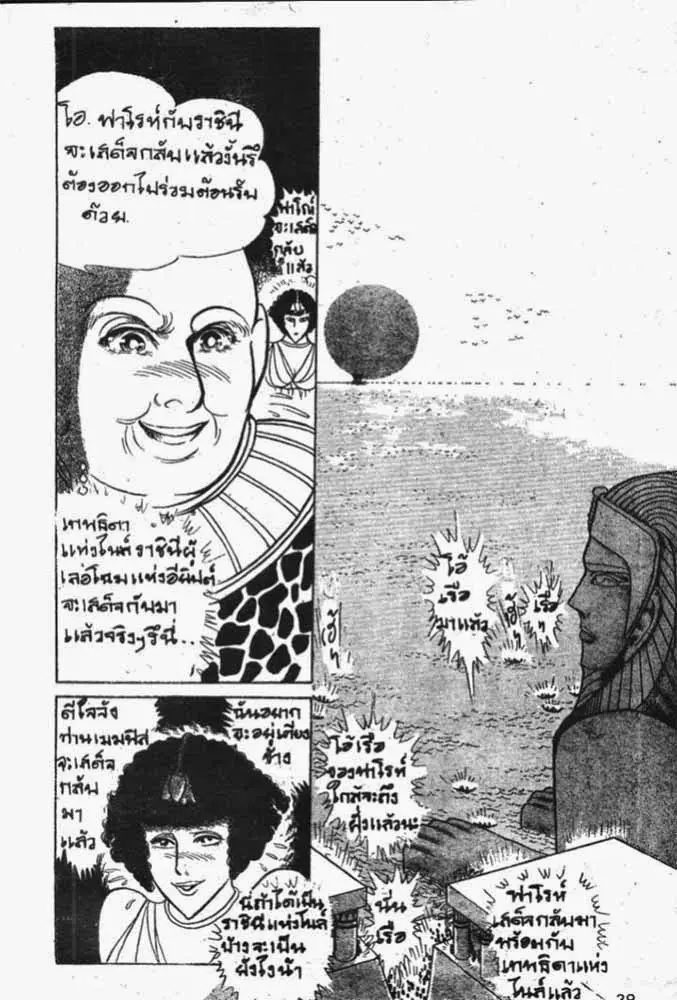 โอ. ฟาโรห์กับราชินี
จะเสด็จกลับแล้วงั้นรึ
ต้องออกไปร่วมต้อนรับ
ด้วย.
ฟาโรห์
จะเสด็จ
กลับ
แล้ว
เทพธิดา
แห่งไนล์ ราชินีผู้
เลอโฉมแห่งอียิปต์
จะเสด็จกลับมา
แล้วจริงๆรึนี่...
โอ้
เรือ
มาแล้ว
เฮ้!
ๆ
เรือ
ๆ
เฮ้!
ๆ
ดีใจจัง
ท่านเมมฟิส
จะเสด็จ
กลับ
มา
แล้ว
ฉันอยาก
จะอยู่เคียง
ข้าง
นี่ถ้าได้เป็น
ราชินีแห่งไนล์
บ้างจะเป็น
ยังไงน้า
โอ้เรือ
ของฟาโรห์
ใกล้จะถึง
ฝั่งแล้วนะ
นั่น
เรือ
ฟาโรห์
เสด็จกลับมา
พร้อมกับ
เทพธิดาแห่ง
ไนล์แล้ว
39